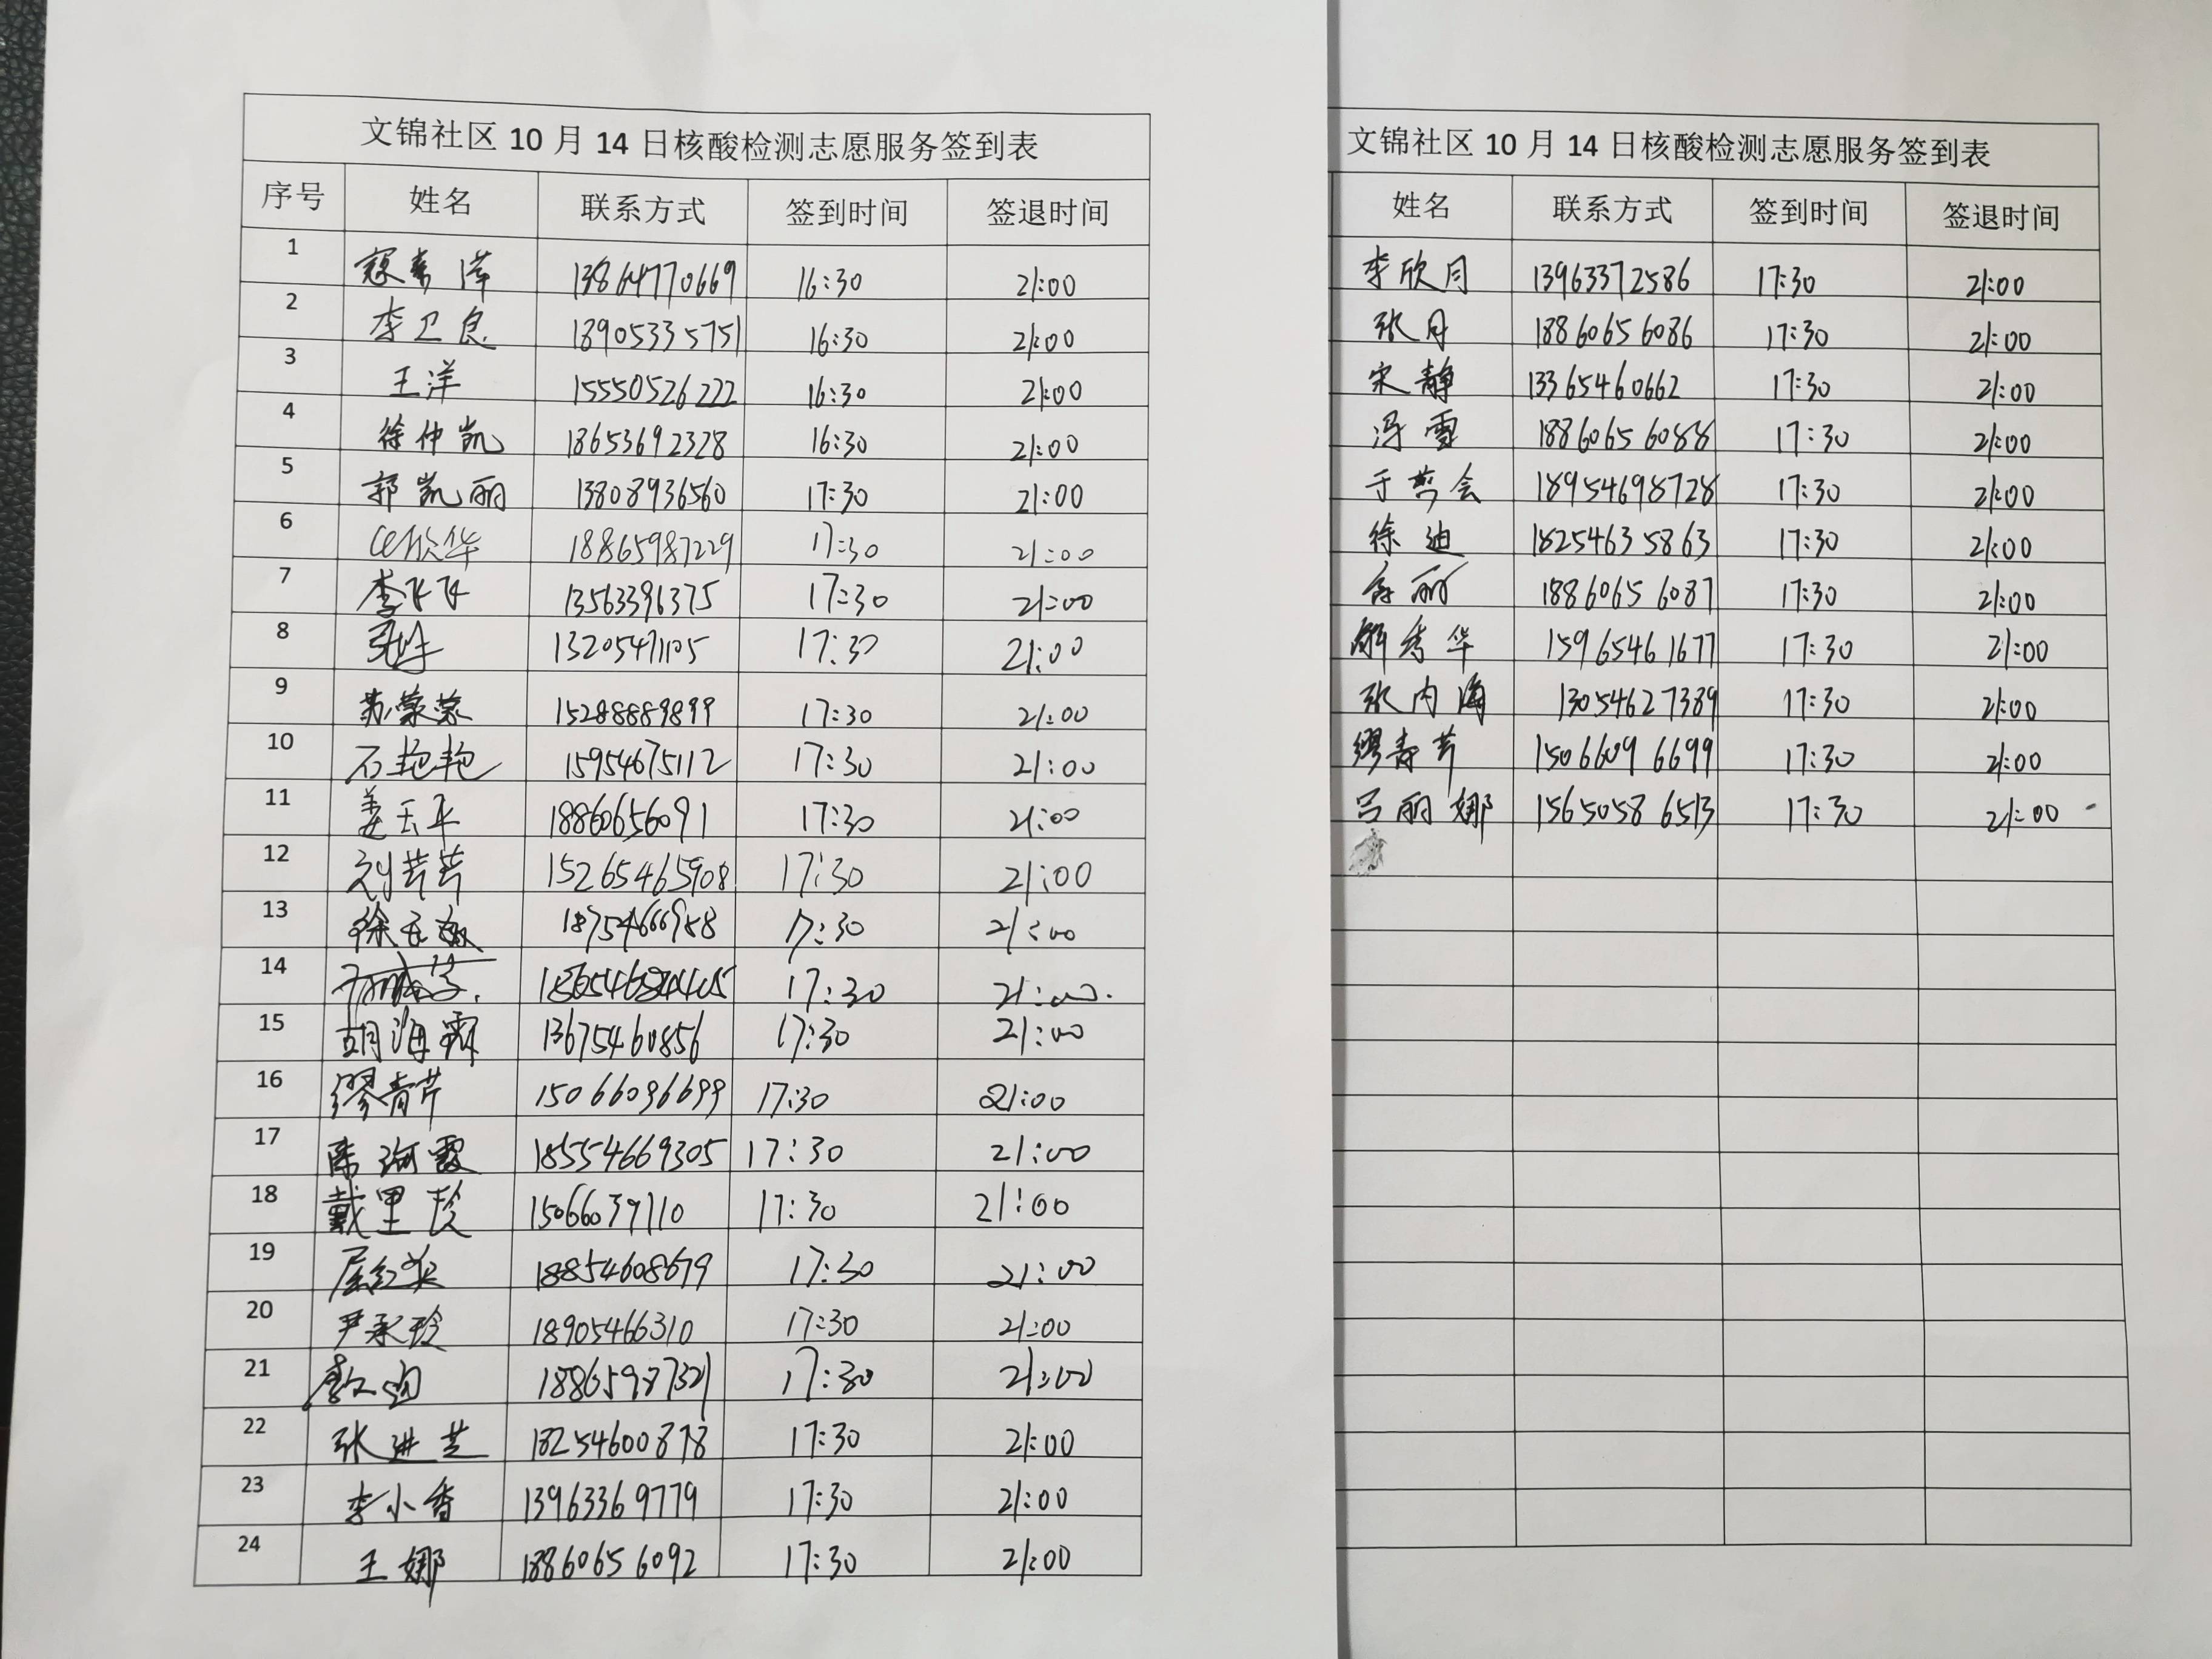 文锦社区 10 月 14 日核酸检测志愿服务签到表
序号 姓名 联系方式 签到时间 签退时间
1 寇素萍 13864770669 16:30 21:00
2 李卫良 13905335751 16:30 21:00
3 王洋 15550526222 16:30 21:00
4 徐仲凯 18653692328 16:30 21:00
5 郭凯丽 13808936560 17:30 21:00
6 18865987229 17:30 21:00
7 李飞飞 13563396375 17:30 21:00
8 13205471105 17:30 21:00
9 苏荣荣 15288889899 17:30 21:00
10 石艳艳 15954675112 17:30 21:00
11 姜玉平 18860656091 17:30 21:00
12 刘芸芸 15265465908 17:30 21:00
13 徐玉 18754666988 17:30 21:00
14 17:30 21:00
15 胡海霞 13675460856 17:30 21:00
16 缪青芹 15066096699 17:30 21:00
17 陈海霞 18554669305 17:30 21:00
18 戴里珍 1506639110 17:30 21:00
19 屈红 18854608679 17:30 21:00
20 尹承玲 18905466310 17:30 21:00
21 18865987321 17:30 21:00
22 张进芝 18254600878 17:30 21:00
23 李小香 13963369779 17:30 21:00
24 王娜 18860656092 17:30 21:00
文锦社区 10 月 14 日核酸检测志愿服务签到表
姓名 联系方式 签到时间 签退时间
李欣月 13963372586 17:30 21:00
张月 18860656086 17:30 21:00
宋静 13365460662 17:30 21:00
冯雪 18860656088 17:30 21:00
于 会 18954698728 17:30 21:00
徐迪 18254635863 17:30 21:00
丽 18860656087 17:30 21:00
解秀华 15965461677 17:30 21:00
张内海 13054627389 17:30 21:00
缪青芹 15066096699 17:30 21:00
吕丽娜 15650586513 17:30 21:00